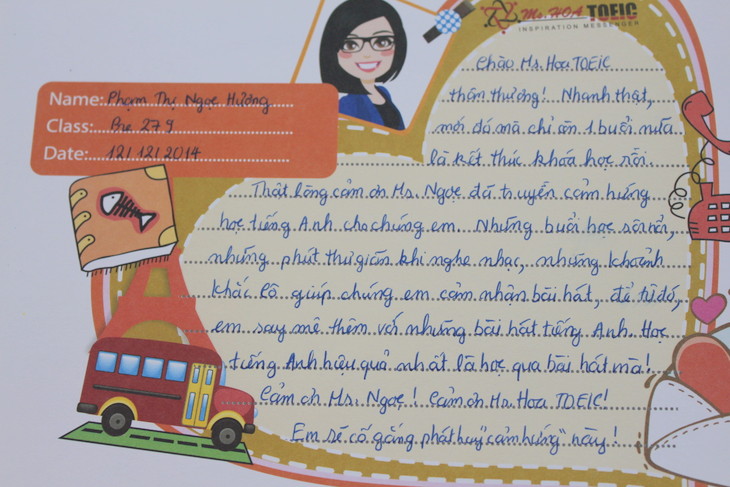 Ms. HOA TOEIC
INSPIRATION MESSENGER
Name: Phạm Thị Ngọc Hường
Class: Pre 279
Date: 12/12/2014
Chào Ms Hoa TOEIC
thân thương! Nhanh thật,
mới đó mà chỉ còn 1 buổi nữa
là kết thúc khóa học rồi.
Thật lòng cảm ơn Ms. Ngọc đã truyền cảm hứng
học tiếng Anh cho chúng em. Những buổi học sôi nổi,
những phút thư giãn khi nghe nhạc, những khoảnh
khắc Cô giúp chúng em cảm nhận bài hát, để từ đó,
em say mê thêm với những bài hát tiếng Anh. Học
tiếng Anh hậu quả nhất là học qua bài hát mà!
Cảm ơn Ms. Ngọc! Cảm ơn Ms. Hoa TOEIC!
Em sẽ cố gắng phát huy "cảm hứng" này!